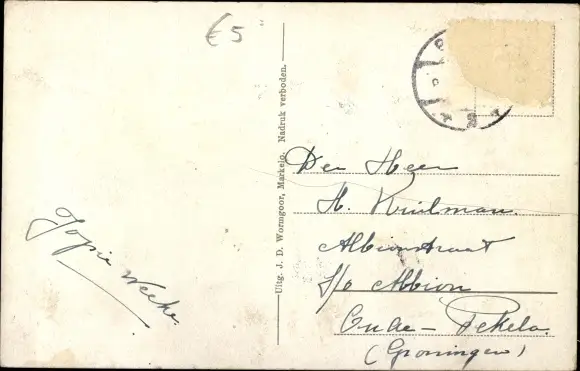 €5
Uitg. J. D. Wormgoor, Markelo. Nadruk verboden.
Jopie Weeke
Den Heer
H. Kuilman.
Albionstraat
f/o Albion
Oude-Pekela
(Groningen)